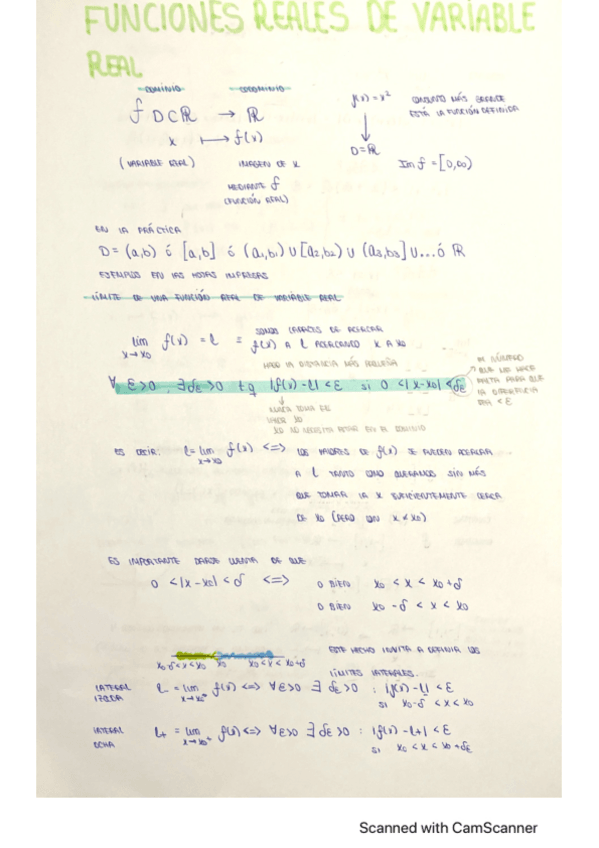 FUNCIONES REALES DE VARIABLE
REAL
DOMINIO CODOMINIO
f D⊂ℝ → ℝ
x ↦ f(x)
(VARIABLE REAL) IMAGEN DE X
MEDIANTE f
(FUNCIÓN REAL)
f(x) = x² CONJUNTO MÁS GRANDE
ESTÁ LA FUNCIÓN DEFINIDA
D=ℝ
Im f = [0,∞)
EN LA PRÁCTICA
D = (a,b) ó [a,b] ó (a₁,b₁) ∪ [a₂,b₂) ∪ (a₃,b₃] ∪... ó ℝ
EJEMPLO EN LAS HOJAS IMPRESAS
LÍMITE DE UNA FUNCIÓN REAL DE VARIABLE REAL
lim f(x) = l = SOMOS CAPACES DE ACERCAR
x→x₀ f(x) A l ACERCANDO X A X₀
HAGO LA DISTANCIA MÁS PEQUEÑA
∀ ε>0, ∃δε >0 tq |f(x)-l|<ε si 0<|x-x₀|<δε
NÚMERO
QUE ME HACE
FALTA PARA QUE
LA DIFERENCIA
SEA < ε.
NUNCA TOMA EL
VALOR X₀
X₀ NO NECESITA ESTAR EN EL DOMINIO
ES DECIR: l = lim f(x) <=> LOS VALORES DE f(x) SE PUEDEN ACERCAR
x→x₀
A l TANTO COMO QUERAMOS SIN MÁS
QUE TOMAR LA X SUFICIENTEMENTE CERCA
DE X₀ (PERO CON X ≠ X₀)
ES IMPORTANTE DARSE CUENTA DE QUE
0 < |x-x₀| < δ <=> O BIEN x₀ < x < x₀+δ
O BIEN x₀-δ < x < x₀
x₀-δ<x<x₀ x₀ x₀<x<x₀+δ
ESTE HECHO INVITA A DEFINIR LOS
LÍMITES LATERALES.
LATERAL IZQDA l₋ = lim x→x₀⁻ f(x) <=> ∀ε>0 ∃ δε>0 : |f(x)-l₋|<ε
si x₀-δ < x < x₀
LATERAL DCHA l₊ = lim x→x₀⁺ f(x) <=> ∀ε>0 ∃ δε>0 : |f(x)-l₊|<ε
si x₀ < x < x₀+δε
Scanned with CamScanner